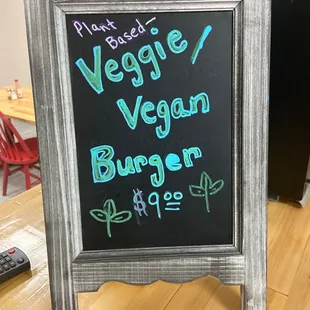 Plant
Based-
Veggie/
Vegan
Burger
$9.00